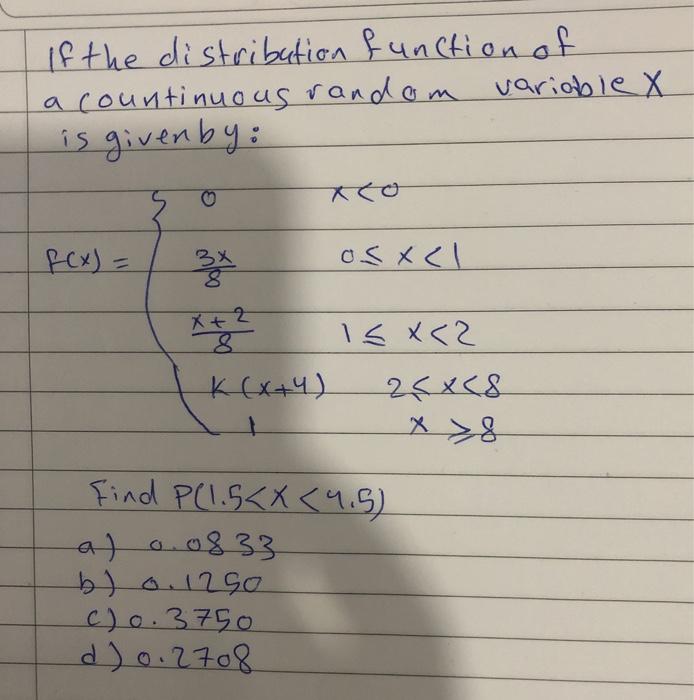 If the distribution function of
a countinuous random variable X
is given by:
0 x<0
f(x) = 3x/8 0≤ x<1
x+2/8 1≤ x<2
K(x+4) 2≤ x<8
1 x ≥8
Find P(1.5<X<4.5)
a) 0.0833
b) 0.1250
c) 0.3750
d) 0.2708